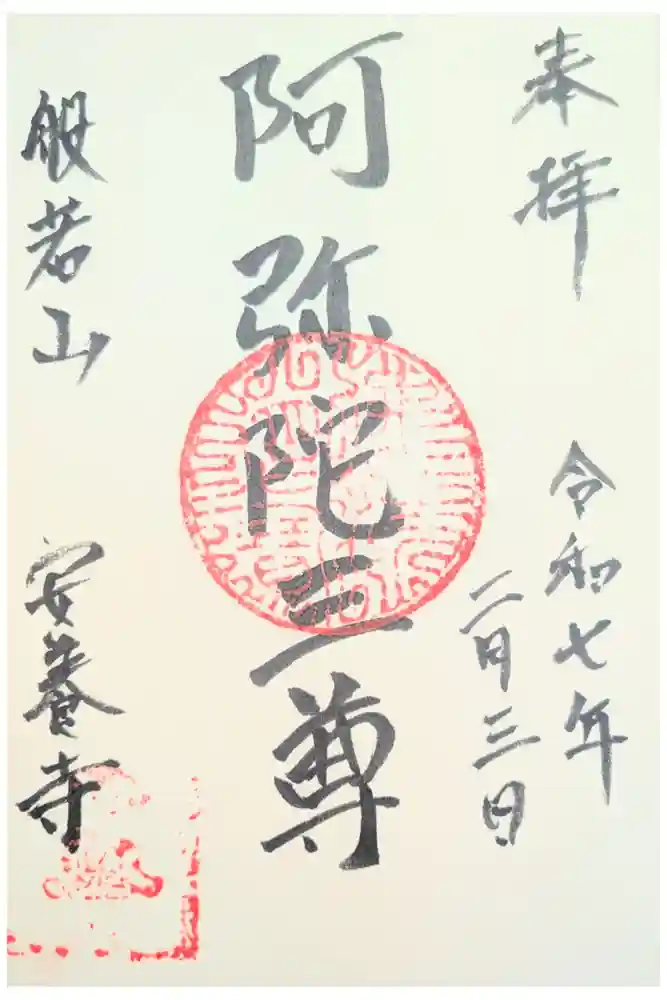 奉拝
令和七年
二月三日
阿弥陀三尊
般若山
安養寺